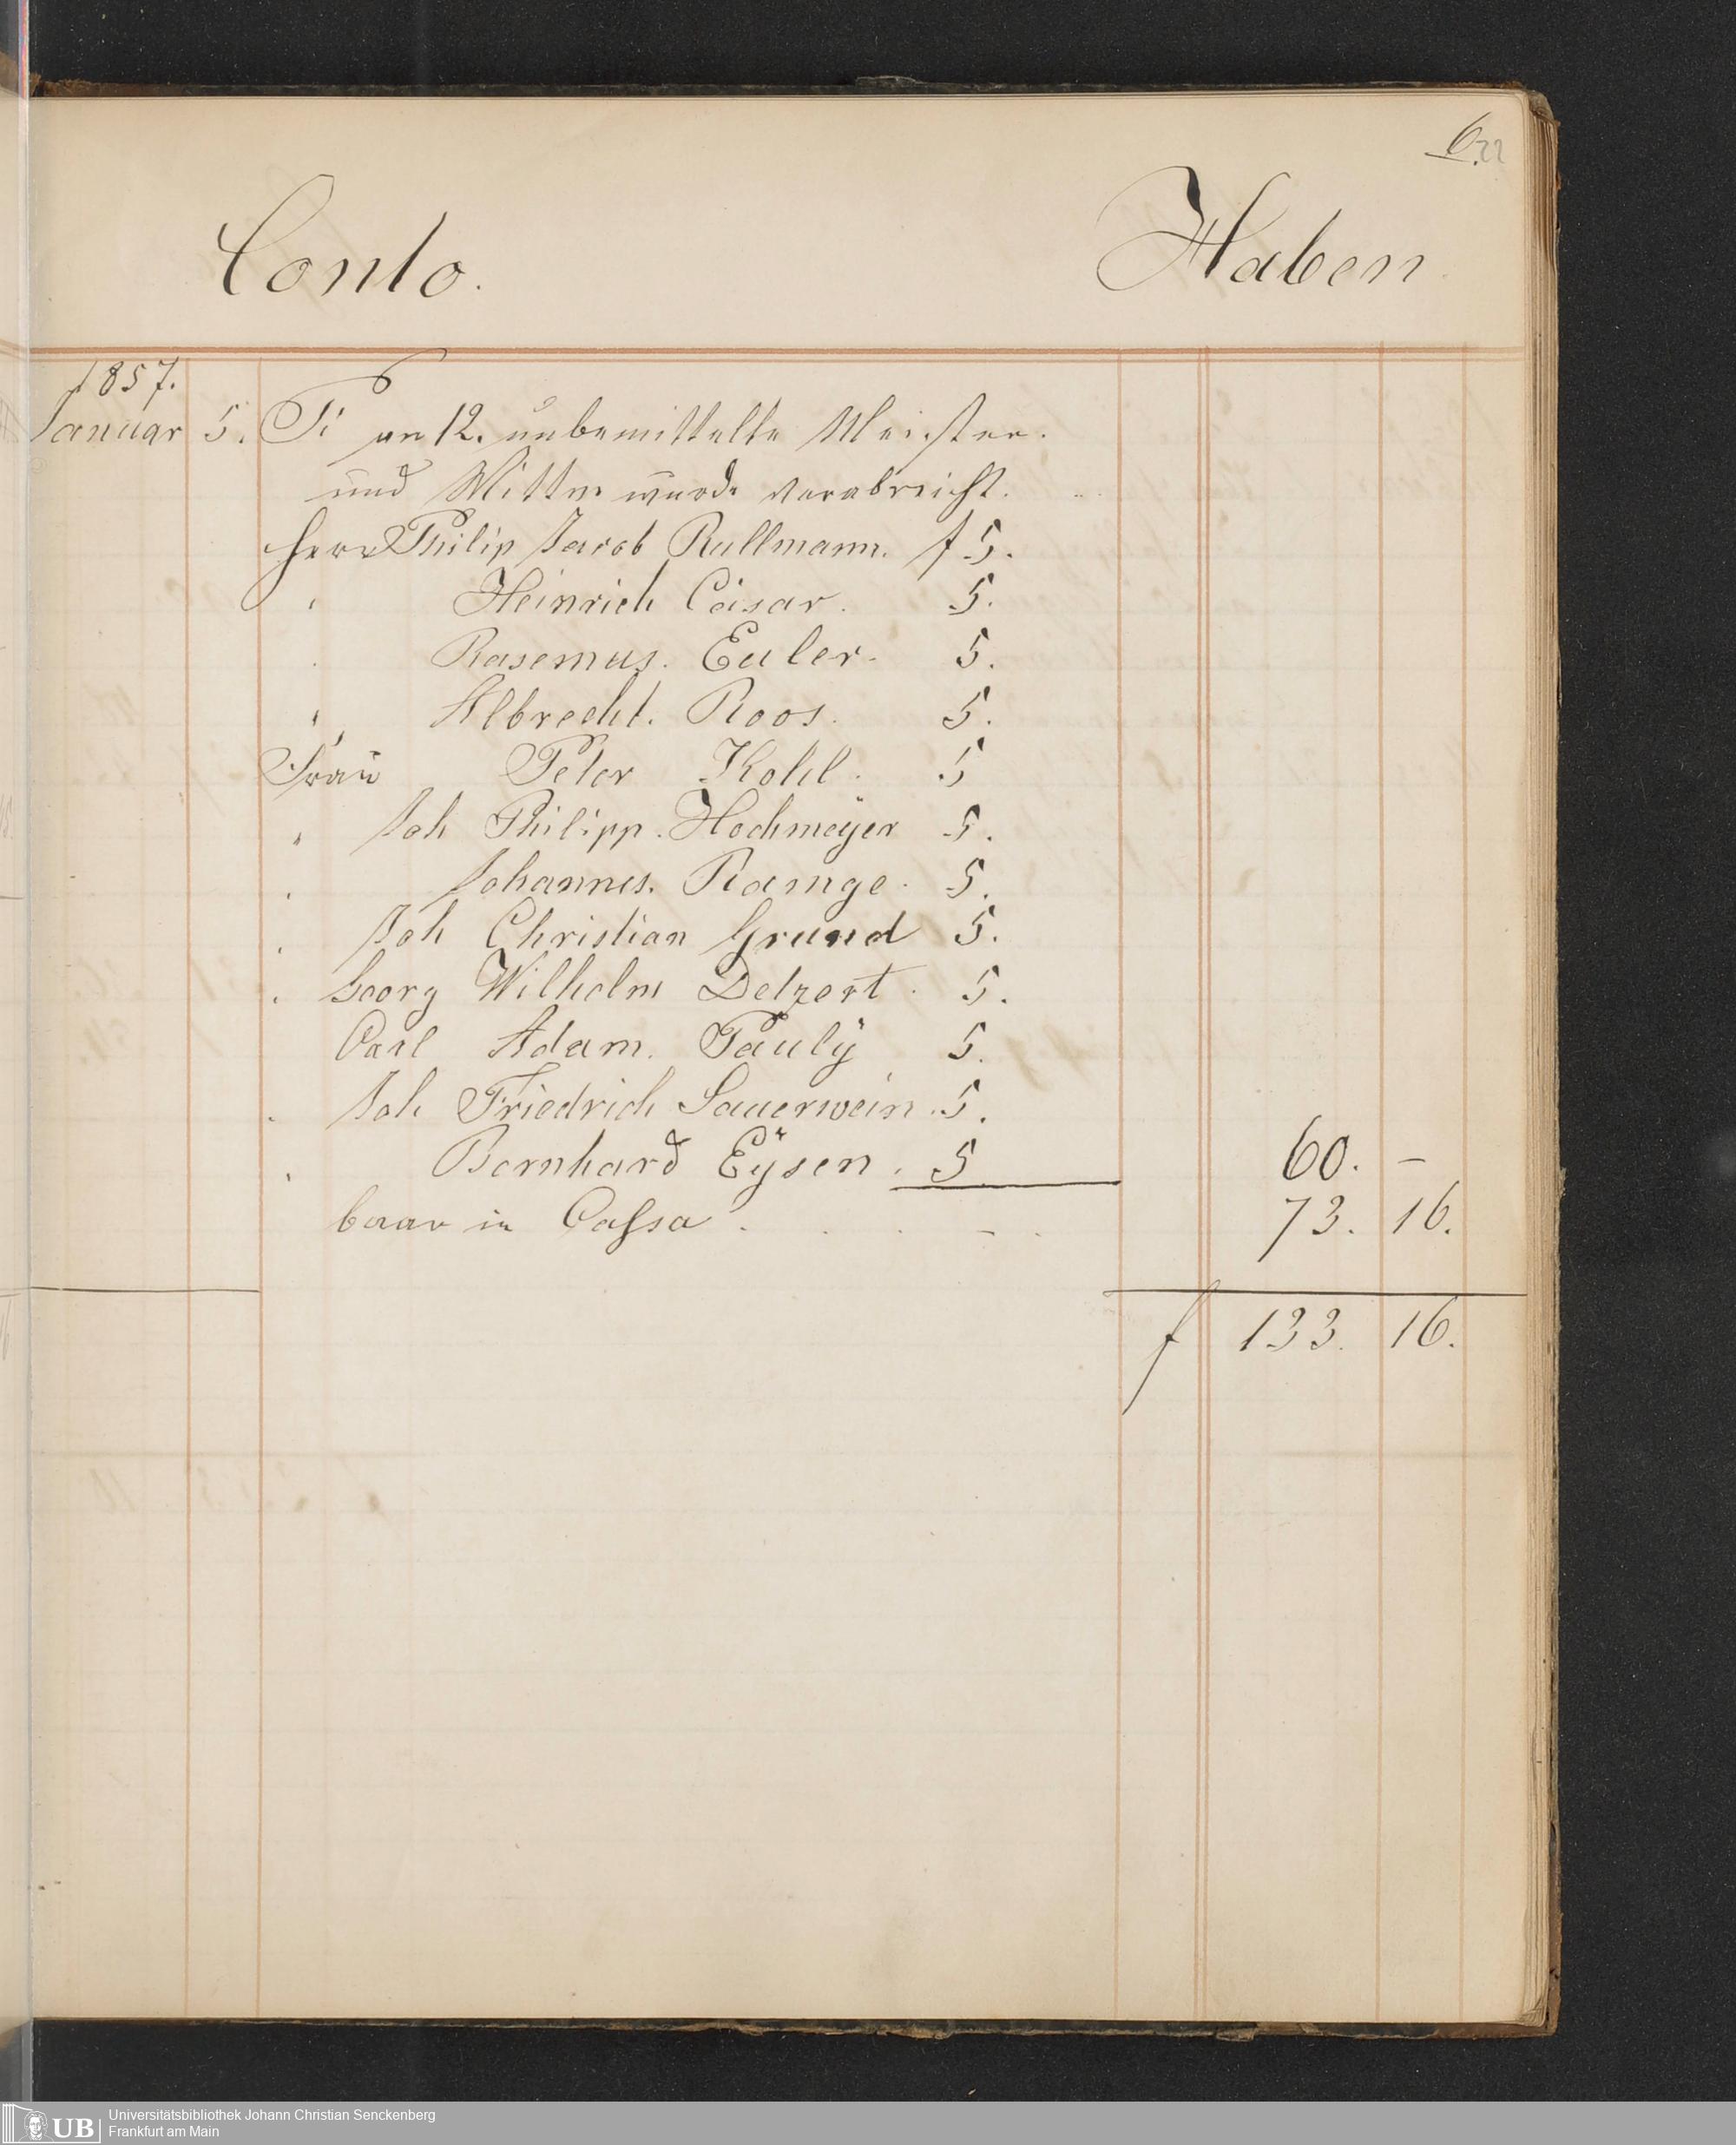 6. 22
Conto. Haben
1857.
Januar 5. Pr an 12. unbemittelte Meister.
und Wittwe wurde verabreicht.
Herr Philip Jacob Rullmann. f 5.
" Heinrich Cäsar. 5.
" Rasemus. Euler. 5.
" Albrecht. Roos. 5.
Frau Peter Kohl. 5
" Joh Philipp. Hochmeÿer 5.
" Johannes. Ramge. 5.
" Joh Christian Grund 5.
" Georg Wilhelm Delzert. 5.
Carl Adam. Paulÿ 5.
" Joh Friedrich Sauerwein. 5.
" Bernhard Eÿsen. 5. 60. –
baar in Cassa . . . – . 73. 16.
f 133. 16.
UB Universitätsbibliothek Johann Christian Senckenberg
Frankfurt am Main